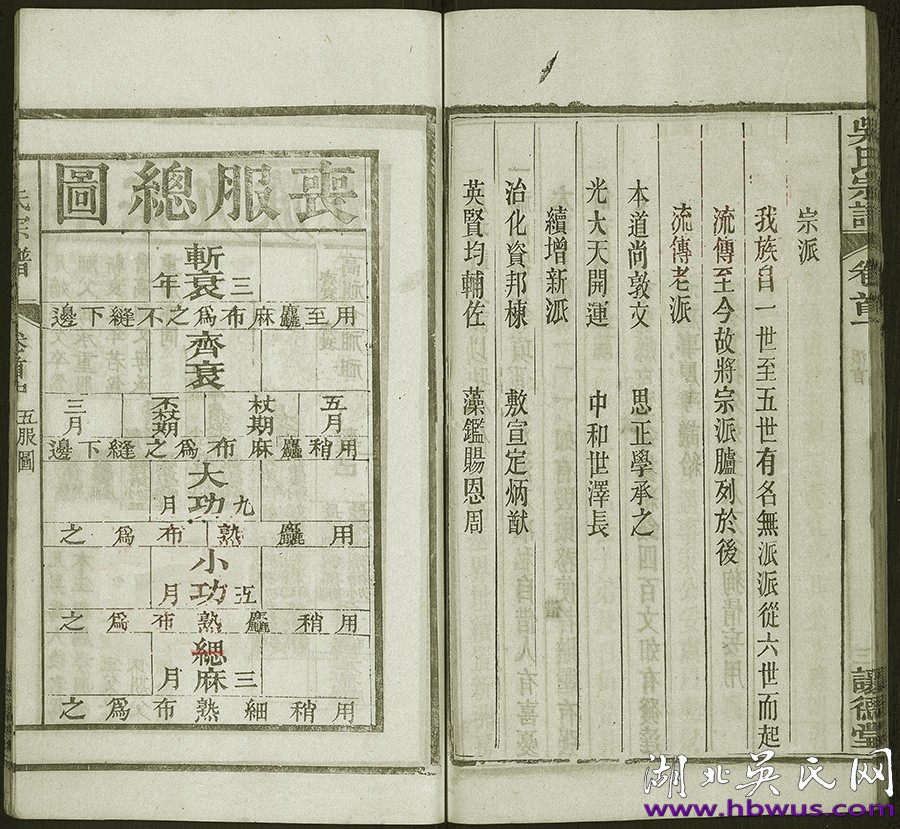 吳氏宗譜
卷首
讓德堂
宗派
我族自一世至五世有名無派派從六世而起
流傳至今故將宗派臚列於後
流傳老派
本道尚敦文 思正學承之
光大天開運 中和世澤長
續增新派
治化資邦棟 敷宣定炳猷
英賢均輔佐 藻鑑賜恩周
喪服總圖
斬衰
三年
用至麤麻布為之不縫下邊
齊衰
五月
杖期
不杖期
三月
用稍麤麻布為之縫下邊
大功
九月
用麤熟布為之
小功
五月
用稍麤熟布為之
緦麻
三月
用稍細熟布為之
氏宗譜
卷首
五服圖
湖北吳氏网
www.hbwus.com